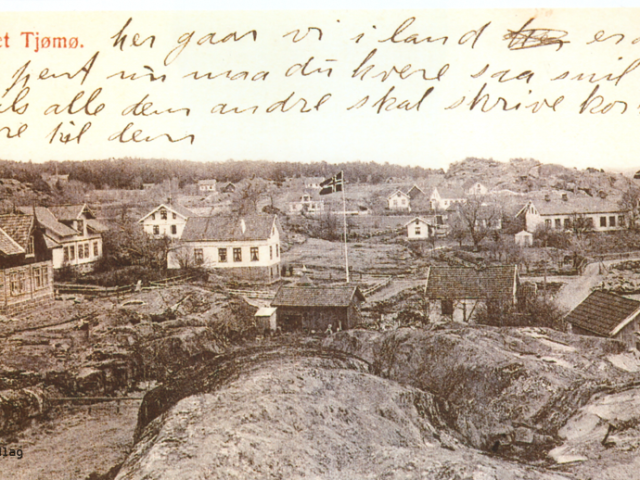 et Tjømø.
her gaar vi i land er
pent nu maa du hvere saa snil
als alle dem andre skal skrive kor
re til dem
lag